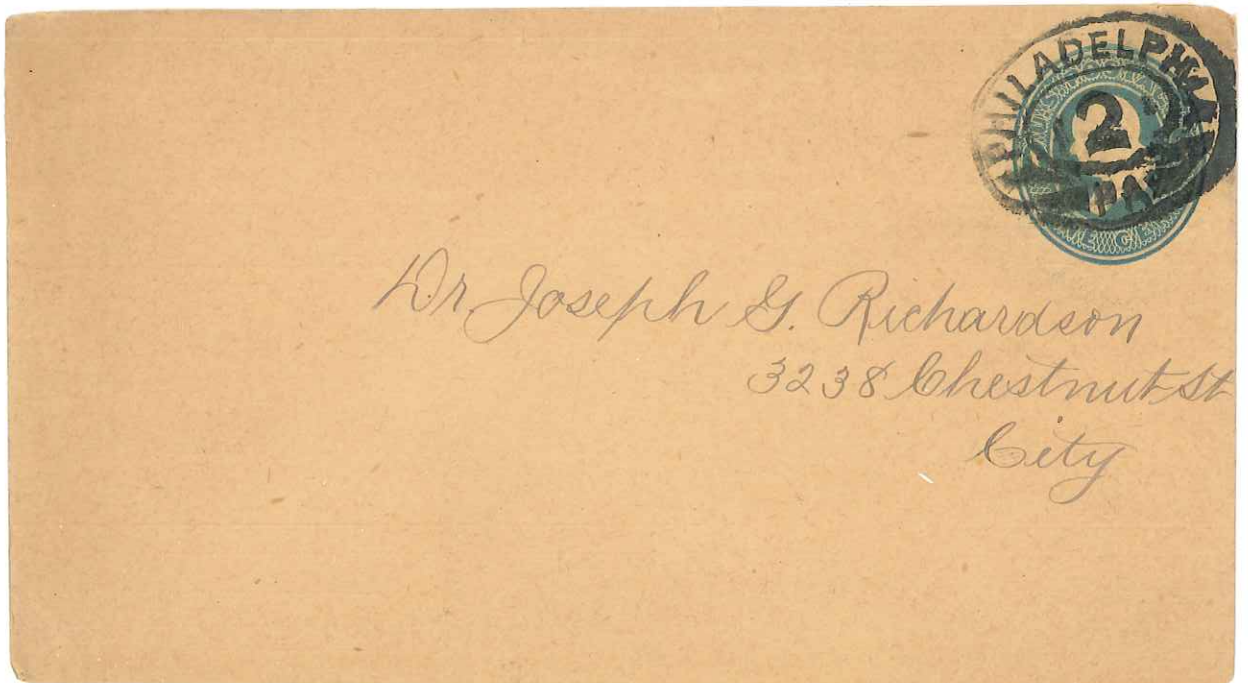 PHILADELPHIA
2
PA
Dr. Joseph G. Richardson
3238 Chestnut St
City